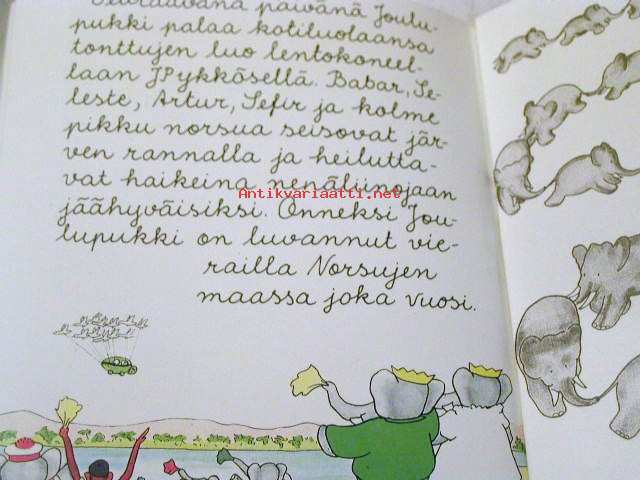 Seuraavana päivänä Joulu-
pukki palaa kotiluolaansa
tonttujen luo lentokoneel-
laan JPykkösellä. Babar, Se-
leste, Artur, Sefir ja kolme
pikku norsua seisovat jär-
ven rannalla ja heilutta-
vat haikeina nenäliinojaan
Antikvariaatti.net
jäähyväisiksi. Onneksi Jou-
lupukki on luvannut vie-
railla Norsujen
maassa joka vuosi.